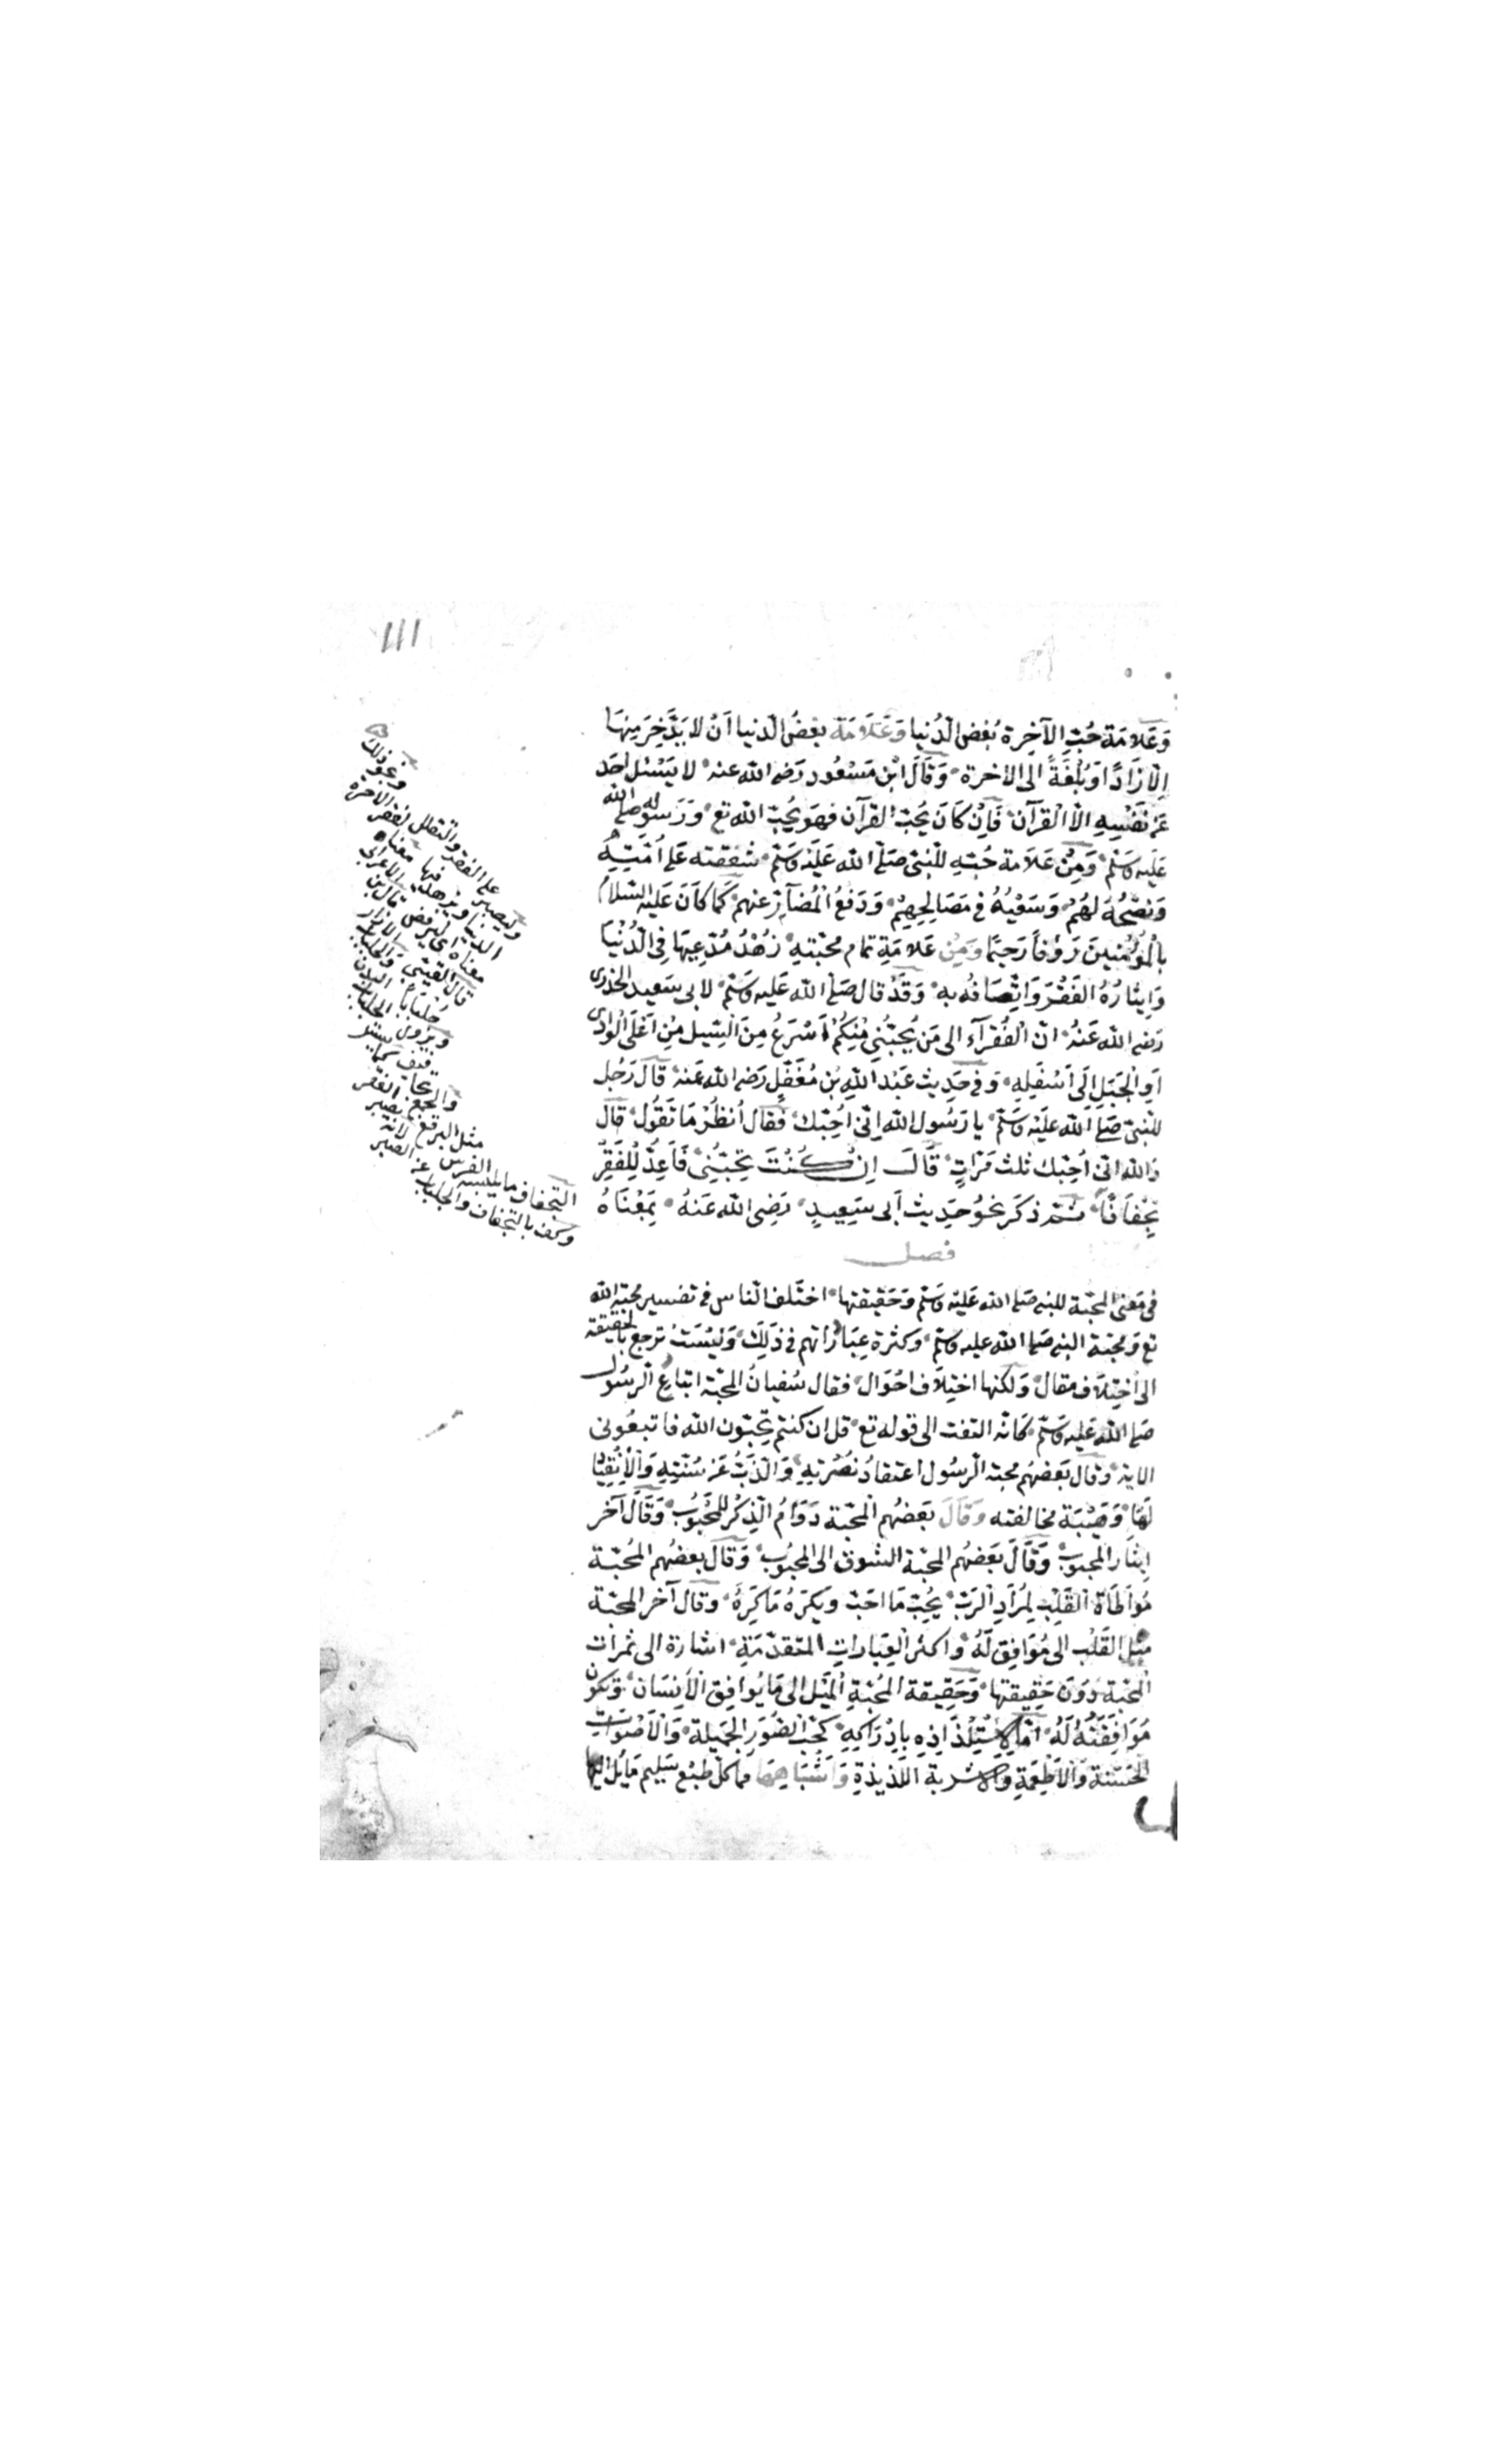 ١١١
وَعَلامَة حُبِّ الآخِرَة بُغض الدُنيا وَعَلَامَة بغضُ الدنيا اَنْ لا يَدَّخِرَ مِنهَا
اِلّا زَادًا وَبُلْغَةً الى الاخرة وَقَالَ ابْن مَسْعُود رَضى الله عنه لا يَسْئل احَد
عَن نَفْسِهِ الّا الْقرآنَ فَاِن كَانَ يُحِبّ القرآن فهو يُحِبّ الله تع وَرَسوله صلى الله
عَلَيه وَسَلّم وَمِنْ عَلَامَة حُبّهِ للنبىّ صَلّى الله عَلَيْه وَسَلّم شفقته عَلى اُمّتِهِ
وَنصْحُهُ لهُمْ وَسَعْيُهُ فى مَصَالِحِهِمْ وَدَفعُ الْمُضَآرِّ عنهم كَما كَانَ عَليه السّلام
بالْمُؤمِنينَ رَؤفاً رَحِيمًا وَمِنْ عَلامَةِ تمام محبّتهِ زُهْدُ مُدّعِيهَا فى الدُّنْيَا
وَايثارُهُ الفَقْرَ وَاتِّصَافُه به وَقَدْ قال صَلّى الله عَليه وَسَلّم لابى سَعيد الخدرى
رَضى الله عَنهُ انّ الْفُقرَآء الى مَن يُحِبّنى مِنكُمْ اَسْرَعُ مِنَ السّيل مِن اَعْلَى الْوادى
اَوِ الْجَبَلِ اِلَى اَسْفَلِهِ وَفى حَدِيث عَبْد اللهِ بْن مُغَفّلٍ رَضى الله عَنه قالَ رَجُل
للنبىّ صَلّى الله عَلَيْه وَسَلّم يا رَسُول الله اِنّى اُحِبّك فقال اُنظُرْ مَا تَقُول قال
وَالله انّى اُحِبّك ثلث مَرّاتٍ قَالَ اِنْ كُنْتَ تُحِبّنِى فَاَعِدَّ لِلْفَقْرِ
تِجْفَافًا ثمّ ذكَرَ نحْوُ حَدِيث اَبى سَعِيدٍ رَضِىَ الله عَنهُ بِمَعْنَاهُ
فصل
فى مَعْنى المحبّة للنبى صَلى الله عَليْه وَسَلّم وَحَقيقتها اختَلَف النّاس فى تفسير محبّة الله
تع وَمحبّة النبى صَلى الله عليه وَسَلّم وكثرة عِبَاراتهم فى ذَلِكَ وَلَيْسَتْ ترجع بالحقيقة
الى اخْتِلاَف مقال وَلكنها اختِلَاف احْوَال فقال سُفيانُ المحبّة اتباعُ الرسُول
صَلى الله عَليه وَسَلّم كَانّه التفت الى قوله تع قل ان كنتم تُحِبّون الله فاتبعُونى
الاية وَقال بَعضهُم محبة الرسُول اعتقادُ نُصْرتِهِ وَالذّبُّ عَن سُنّتِهِ وَالْاِنْقِيَادُ
لَهَا وَهَيْبَة مخالفته وَقَالَ بَعضهُم المحبّة دَوَامُ الذِكْر للمحْبُوب وَقَالَ آخر
اِيثار المحبوب وَقَالَ بَعَضهُم المحبّة الشوق الى المحبُوب وَقال بعضهم المحبّة
مُوَاطَاة القَلْبِ لِمُرَادِ الرّبّ يُحِبّ مَا احَبّ وَيَكرَهُ مَا كَرِهَ وقال آخر المحبّة
ميل القَلْب الى مُوَافِق لَهُ وَاكثر العِبَاراتِ المتقدّمَةِ اشارة الى ثمرات
المحبّة دُونَ حَقِيقتها وَحَقِيقة المحبّةِ المَيْل الى مَا يُوافِق الاِنسَان وَتكون
مُوَافَقَتُهُ لَهُ اِمّا لاِسْتِلْذَاذِهِ بِاِدْرَاكِهِ كَحُبّ الصُّوَر الجَمِيلَة وَالاَصْوَاتِ
الحَسَنَة وَالاَطْعِمَةِ وَالاشربة اللذيذةِ وَاَشْبَاهِهَا ممّا كلّ طبْع سَليم مَائل اليها
ونحو ذلك
وليصبر على الفقر والتقلل لفقر الآخرة
الدنيا ويزهد فيها معناه
معناه اى ليرفض قال ابن الاعرابى
قال القتيبى
جلباباً
ويروى
مثل البرقع
التجفاف ما يلبسه الفرس
وكنى بالتجفاف والجلباب عن الصبر